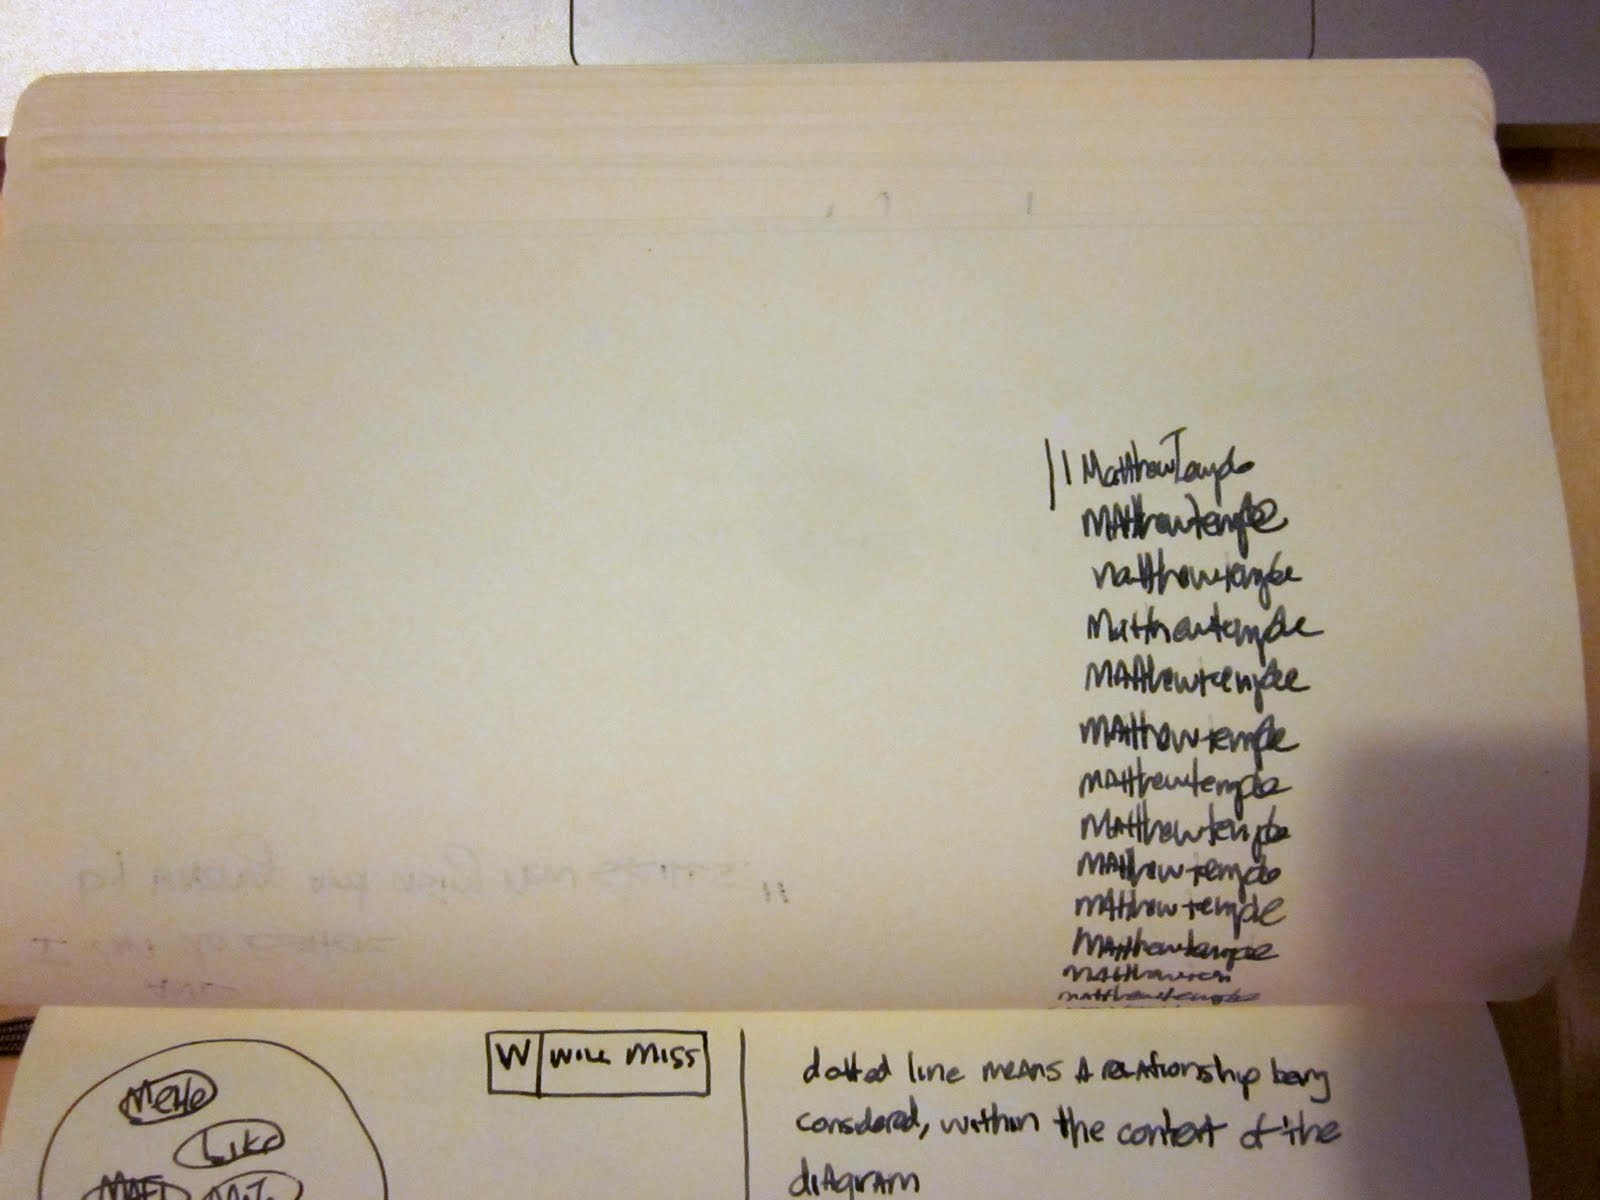 MatthewTemple
MAtthewtemple
matthewtemple
Matthewtemple
MAtthewtemple
MAtthewtemple
MAtthewtemple
MAtthewtemple
MAtthewtemple
mAtthewtemple
MAtthewtemple
matthewtemple
W WILL MISS
dotted line MEANS A RElAtionship being
considered, within the context of the
diAgRAM
Like